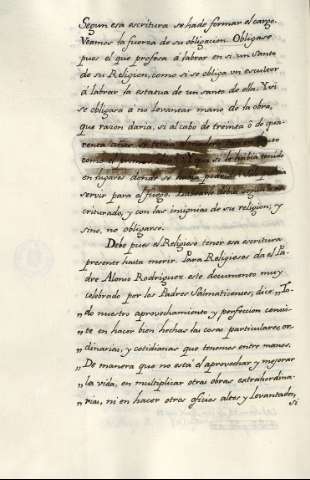 Segun esa escritura se ha de formar el cargo.
Veamos la fuerza de su obligacion. Obligase
pues el que profesa á labrar en si un santo
de su Religion, como si se obliga un escultor
á labrar la estatua de un santo de ella. Y si
se obligasa á no levantar mano de la obra,
que razon daria, si al cabo de treinta ó de qua-
renta
como el primer dia? Y que si le habia tenido
en lugares donde se havia
servir para el fuego,
criturado, y con las insignias de su religion; y
sino, no obligarse.
Debe pues el Religioso tener esa escritura
presente hasta morir. Para Religiosos da el Pa-
dre Alonso Rodriguez este documento muy
celebrado por los Padres Salmaticenses; dice „To-
„do nuestro aprovechamiento y perfeccion consis-
„te en hacer bien hechas las cosas particulares, or-
„dinarias, y cotidianas que tenemos entre manos.
„De manera que no está el aprovechar y mejorar
„la vida, en multiplicar otras obras extrahordina-
„rias, ni en hacer otros oficios altos y levantados,
si